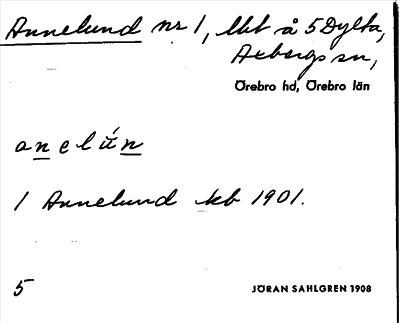 Annelund nr 1, lht å 5 Dylta,
Axbergs sn,
Örebro hd, Örebro län
anelún
1 Annelund kb 1901.
5
JÖRAN SAHLGREN 1908